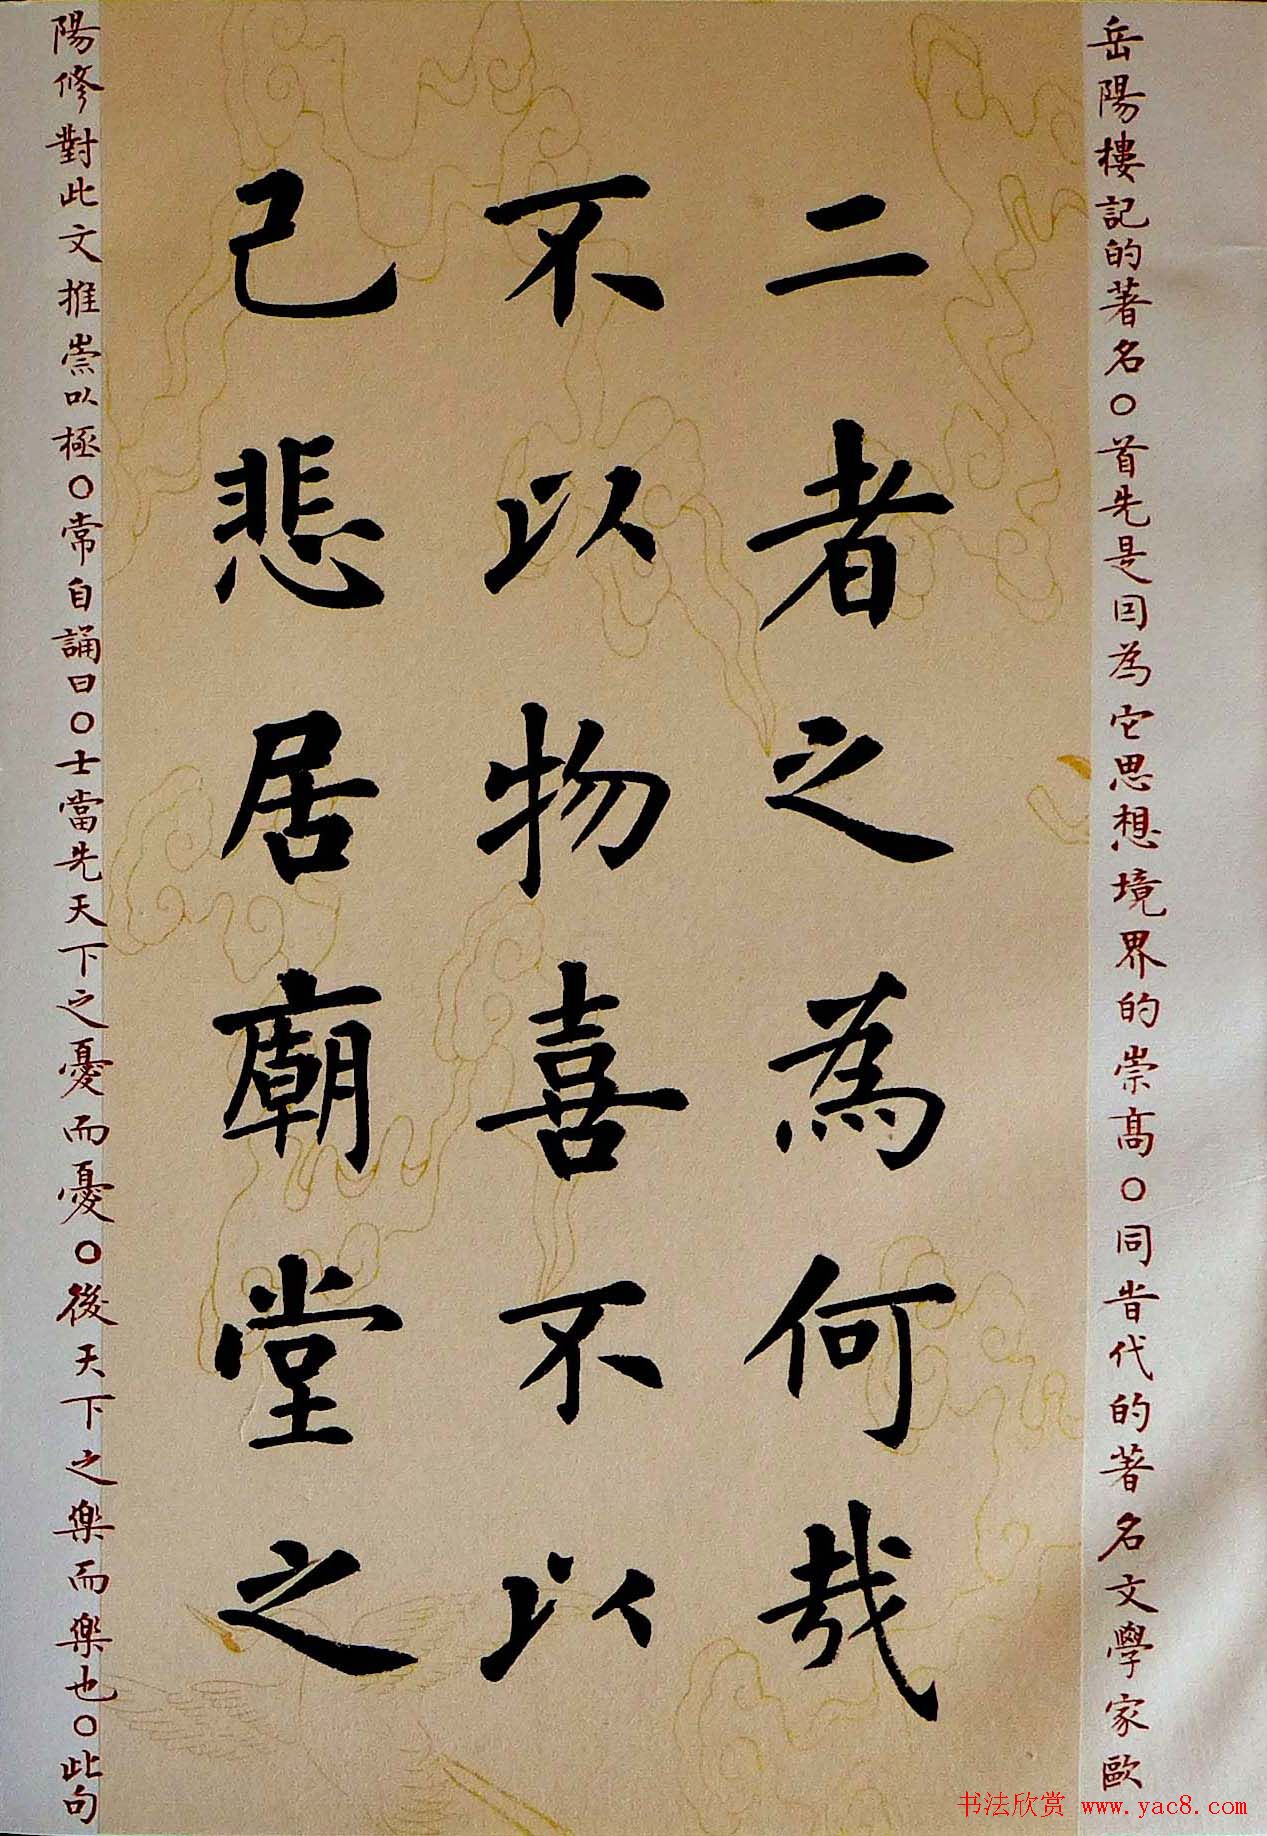 岳陽樓記的著名〇首先是因為它思想境界的崇高〇同時代的著名文學家歐
二者之為何哉
不以物喜不以
己悲居廟堂之
陽修對此文推崇以極〇常自誦曰〇士當先天下之憂而憂〇後天下之樂而樂也〇此句
书法欣赏 www.yac8.com